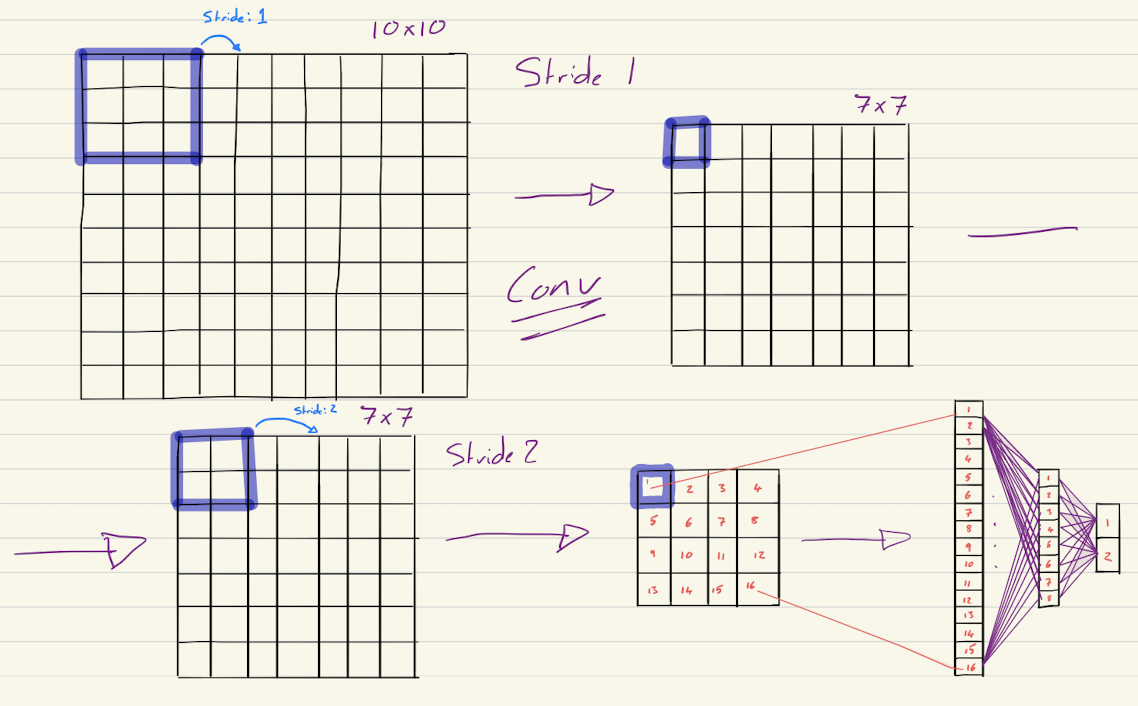 Stride: 1
10x10
Stride 1
7x7
Conv
Stride: 2
7x7
Stride 2
1 2 3 4
5 6 7 8
9 10 11 12
13 14 15 16
1
2
3
4
5
6
7
8
9
10
11
12
13
14
15
16
1
2
3
4
5
6
7
8
1
2